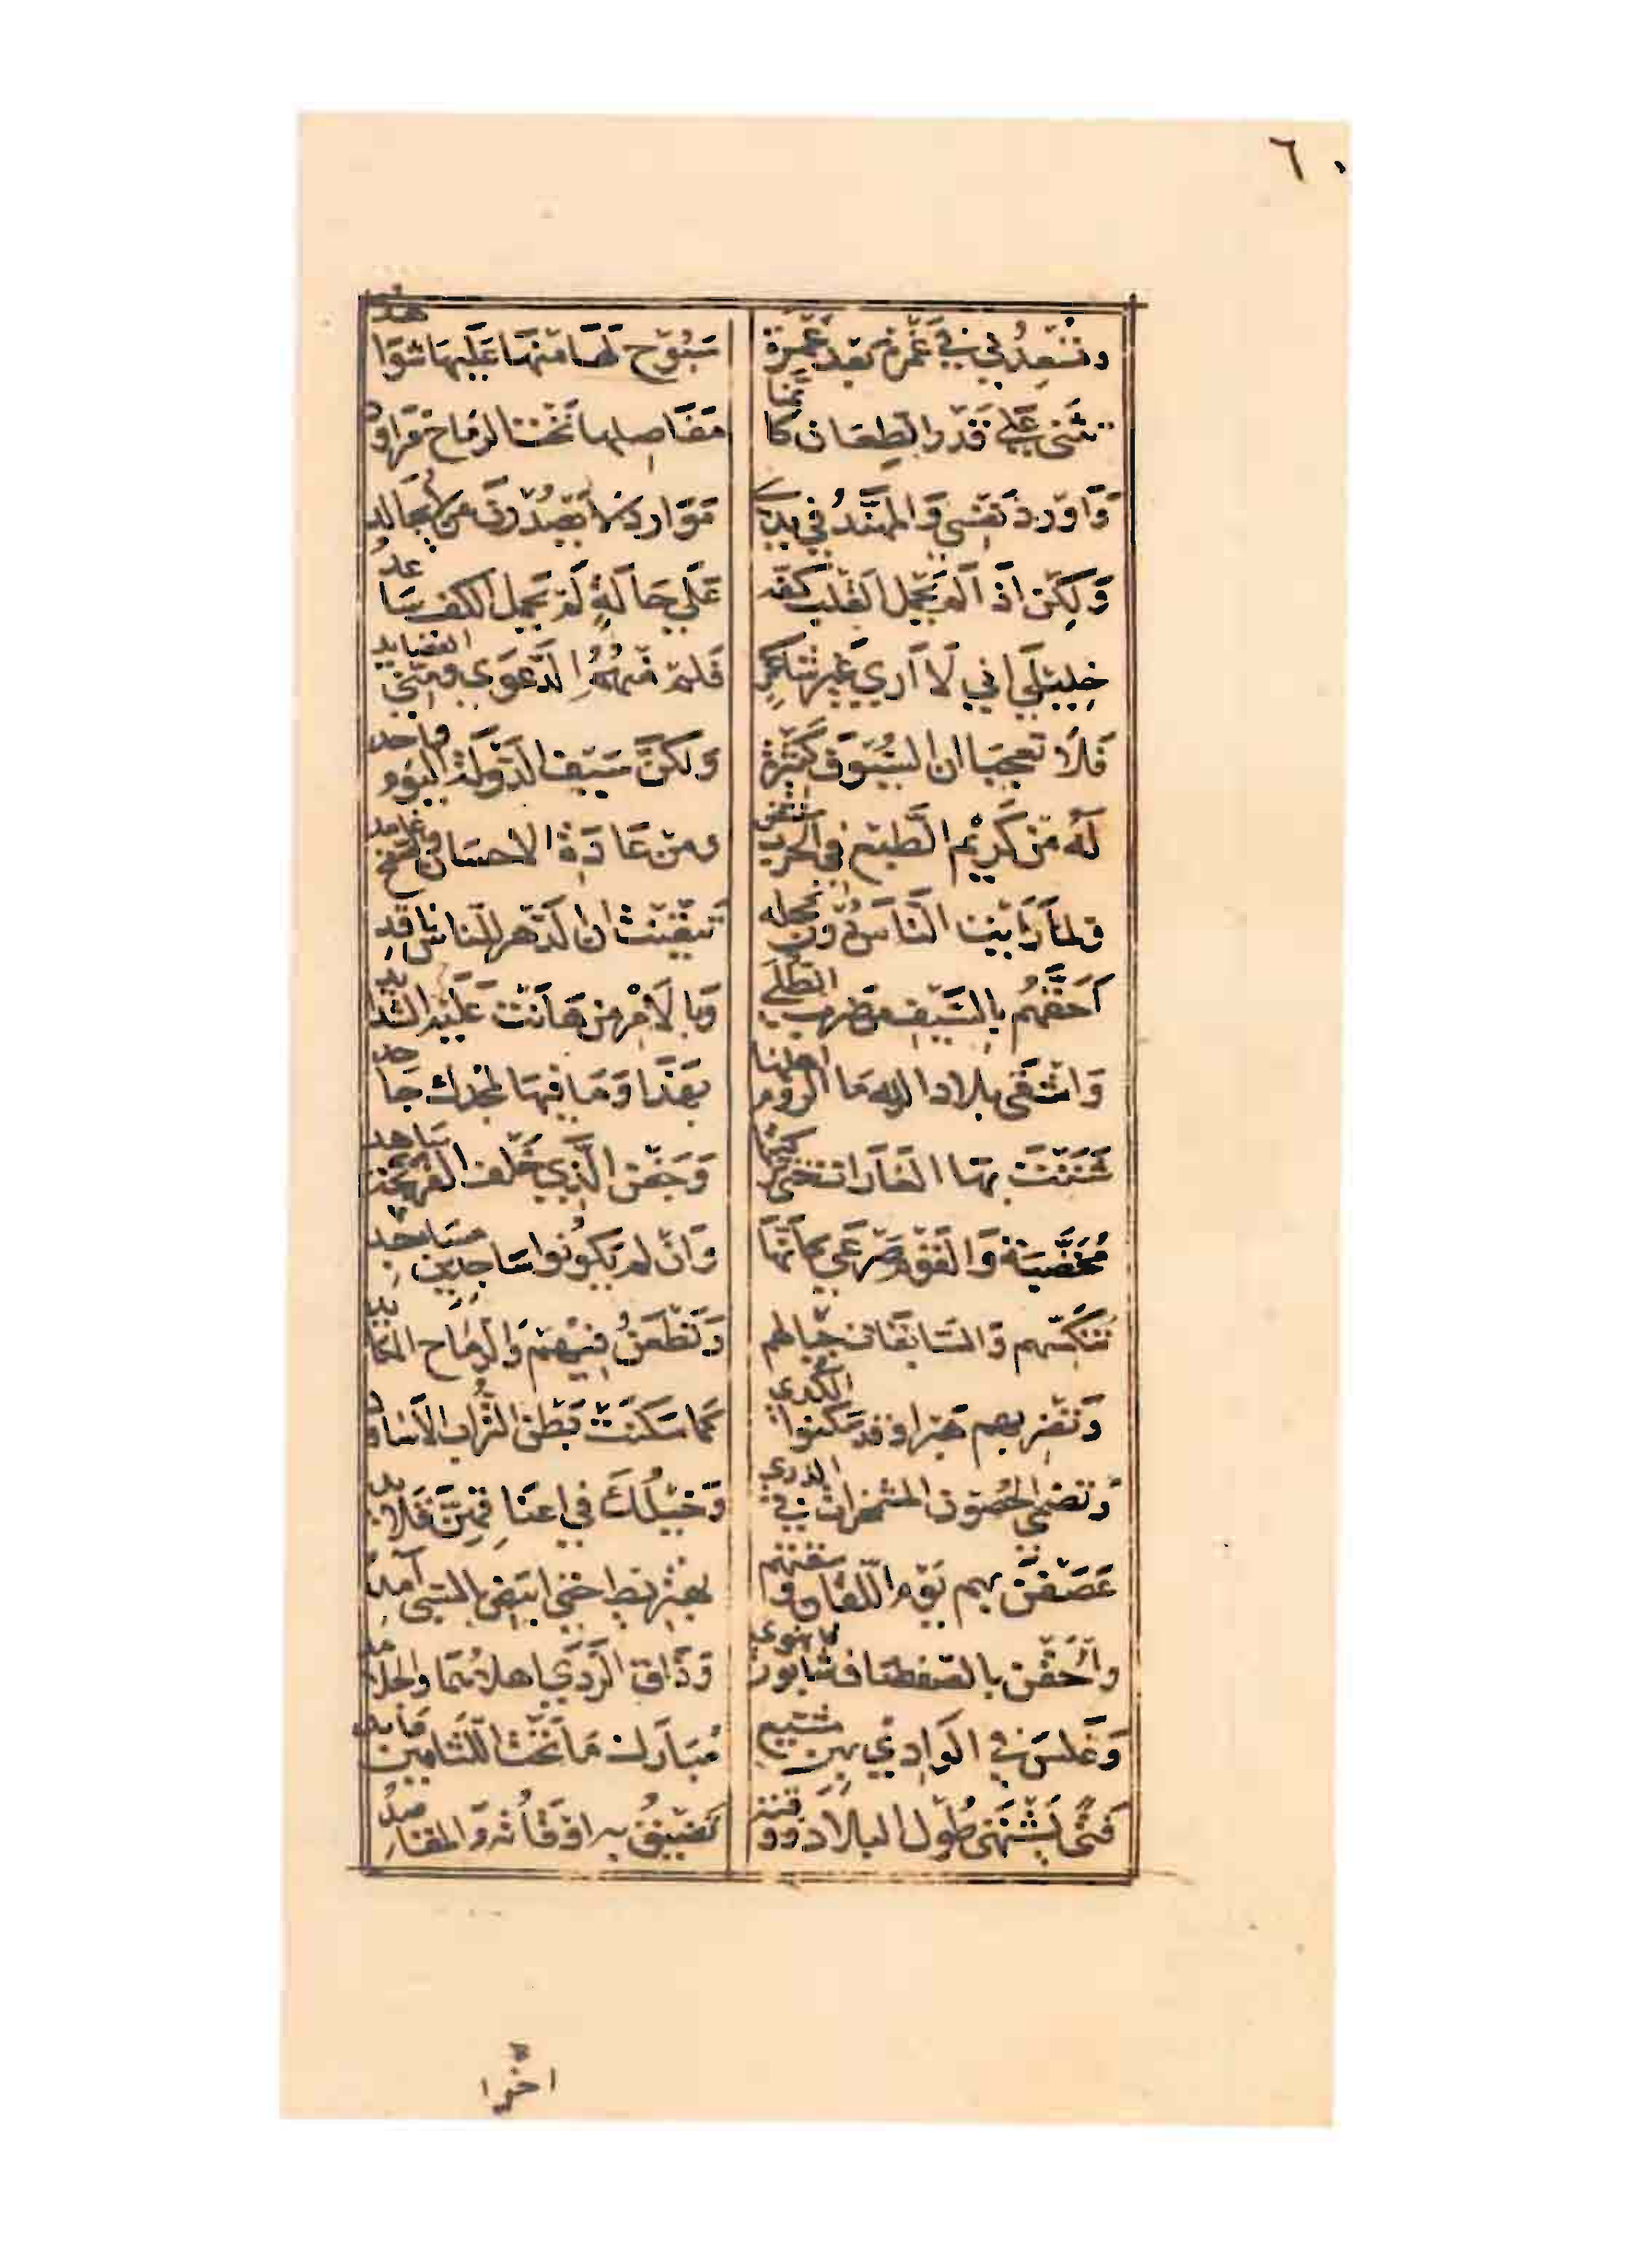 ٦٠
وَتُسْعِدُنِي فِي غَمْرَةٍ بَعْدَ غَمْرَةٍ سَبُوحٌ لَهَا مِنْهَا عَلَيْهَا شَوَاهِدُ
تَثَنَّى عَلَى قَدْرِ الطِّعَانِ كَأَنَّمَا مَفَاصِلُهَا تَحْتَ الرِّمَاحِ مَرَاوِدُ
وَأُورِدُ نَفْسِي وَالْمُهَنَّدُ فِي يَدِي مَوَارِدَ لَا يُصْدِرْنَ مَنْ لَا يُجَالِدُ
وَلَكِنْ إِذَا لَمْ يَحْمِلِ الْقَلْبُ كَفَّهُ عَلَى حَالَةٍ لَمْ يَحْمِلِ الْكَفَّ سَاعِدُ
خَلِيلَيَّ إِنِّي لَا أَرَى غَيْرَ شَاعِرٍ فَلِمْ مِنْهُمُ الدَّعْوَى وَمِنِّي الْقَصَايِدُ
فَلَا تَعْجَبَا إِنَّ السُّيُوفَ كَثِيرَةٌ وَلَكِنَّ سَيْفَ الدَّوْلَةِ الْيَوْمَ وَاحِدُ
لَهُ مِنْ كَرِيمِ الطَّبْعِ فِي الْحَرْبِ مُنْتَضٍ وَمِنْ عَادَةِ الْإِحْسَانِ وَالصَّفْحِ غَامِدُ
وَلَمَّا رَأَيْتُ النَّاسَ دُونَ مَحَلِّهِ تَيَقَّنْتُ أَنَّ الدَّهْرَ لِلنَّاسِ نَاقِدُ
أَحَقُّهُمُ بِالسَّيْفِ مَنْ ضَرَبَ الطُّلَى وَبِالْأَمْرِ مَنْ هَانَتْ عَلَيْهِ الشَّدَايِدُ
وَأَشْقَى بِلَادِ اللهِ مَا الرُّومُ أَهْلُهَا بِهَذَا وَمَا فِيهَا لِمَجْدِكَ جَاحِدُ
شَنَنْتَ بِهَا الْغَارَاتِ حَتَّى تَرَكْتَهَا وَجَفْنُ الَّذِي خَلْفَ الْفَرَنْجَةِ سَاهِدُ
مُخَضَّبَةٌ وَالْقَوْمُ صَرْعَى كَأَنَّهَا وَإِنْ لَمْ يَكُونُوا سَاجِدِينَ مَسَاجِدُ
تُنَكِّسُهُمْ وَالسَّابِقَاتُ جِبَالُهُمْ وَتَطْعَنُ فِيهِمْ وَالرِّمَاحُ الْمَكَايِدُ
وَتَضْرِبُهُمْ هَبْرًا وَقَدْ سَكَنُوا الْكُدَى كَمَا سَكَنَتْ بَطْنَ التُّرَابِ الْأَسَاوِدُ
وَتُضْحِي الْحُصُونُ الْمُشْمَخِرَّاتُ فِي الذُّرَى وَخَيْلُكَ فِي أَعْنَاقِهِنَّ قَلَايِدُ
عَصَفْنَ بِهِمْ يَوْمَ اللُّقَانِ وَسُقْنَهُمْ بِهِنْزِيطَ حَتَّى ابْيَضَّ بِالسَّبْيِ آمِدُ
وَأَلْحَقْنَ بِالصَّفْصَافِ سَابُورَ فَانْهَوَى وَذَاقَ الرَّدَى أَهْلَاهُمَا وَالْجَلَامِدُ
وَغَلَّسَ فِي الْوَادِي بِهِنَّ مُشَيَّعٌ مُبَارَكُ مَا تَحْتَ اللِّثَامَيْنِ عَابِدُ
فَتًى يَشْتَهِي طُولَ الْبِلَادِ وَوَقْتِهِ تَضِيقُ بِهِ أَوْقَاتُهُ وَالْمَقَاصِدُ